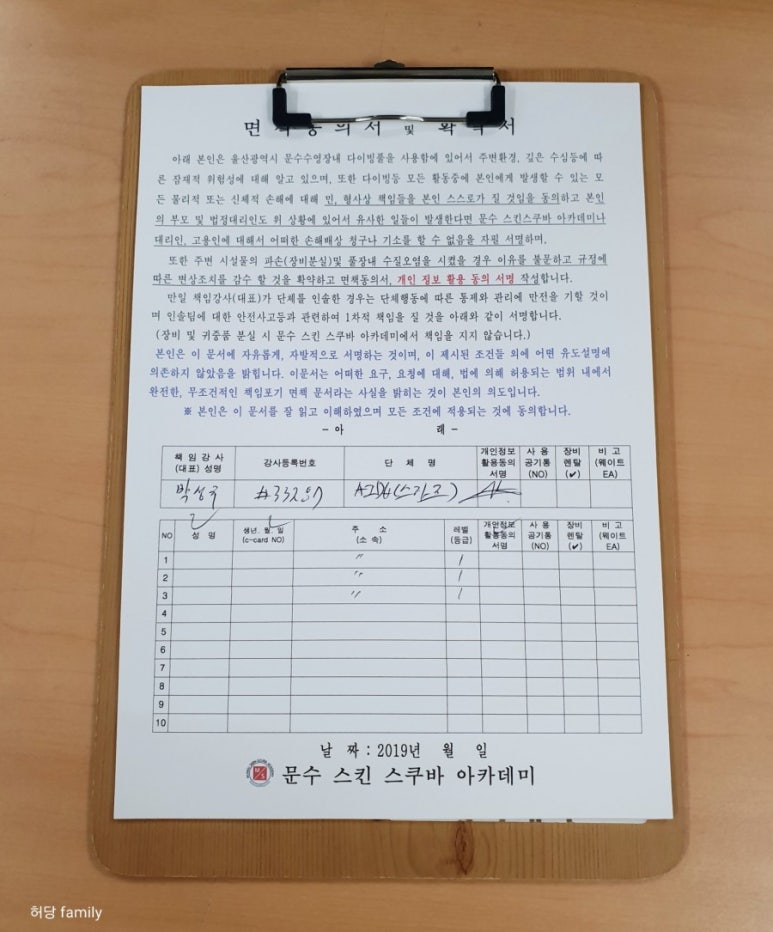 면책동의서 및 확약서
아래 본인은 울산광역시 문수수영장내 다이빙풀을 사용함에 있어서 주변환경, 깊은 수심등에 따
른 잠재적 위험성에 대해 알고 있으며, 또한 다이빙등 모든 활동중에 본인에게 발생할 수 있는 모
든 물리적 또는 신체적 손해에 대해 민, 형사상 책임들을 본인 스스로가 질 것임을 동의하고 본인
의 부모 및 법정대리인도 위 상황에 있어서 유사한 일들이 발생한다면 문수 스킨스쿠바 아카데미나
대리인, 고용인에 대해서 어떠한 손해배상 청구나 기소를 할 수 없음을 자필 서명하며,
또한 주변 시설물의 파손(장비분실)및 풀장내 수질오염을 시켰을 경우 이유를 불문하고 규정에
따른 변상조치를 감수 할 것을 확약하고 면책동의서, 개인 정보 활용 동의 서명 작성합니다.
만일 책임강사(대표)가 단체를 인솔한 경우는 단체행동에 따른 통제와 관리에 만전을 기할 것이
며 인솔팀에 대한 안전사고등과 관련하여 1차적 책임을 질 것을 아래와 같이 서명합니다.
(장비 및 귀중품 분실 시 문수 스킨 스쿠바 아카데미에서 책임을 지지 않습니다.)
본인은 이 문서에 자유롭게, 자발적으로 서명하는 것이며, 이 제시된 조건들 외에 어떤 유도설명에
의존하지 않았음을 밝힙니다. 이문서는 어떠한 요구, 요청에 대해, 법에 의해 허용되는 범위 내에서
완전한, 무조건적인 책임포기 면책 문서라는 사실을 밝히는 것이 본인의 의도입니다.
※ 본인은 이 문서를 잘 읽고 이해하였으며 모든 조건에 적용되는 것에 동의합니다.
- 아 래 -
책 임 강 사 (대표) 성명 강사등록번호 단 체 명 개인정보 활용동의 서명 사 용 공기통 (NO) 장비 렌탈 (✔) 비 고 (웨이트 EA)
박성규 #33207
NO 성 명 생년. 월. 일 (c-card NO) 주 소 (소속) 레벨 (등급) 개인정보 활용동의 서명 사 용 공기통 (NO) 장비 렌탈 (✔) 비 고 (웨이트 EA)
1 〃 /
2 〃 /
3 〃 /
4
5
6
7
8
9
10
날 짜 : 2019년 월 일
문수 스킨 스쿠바 아카데미
허당 family